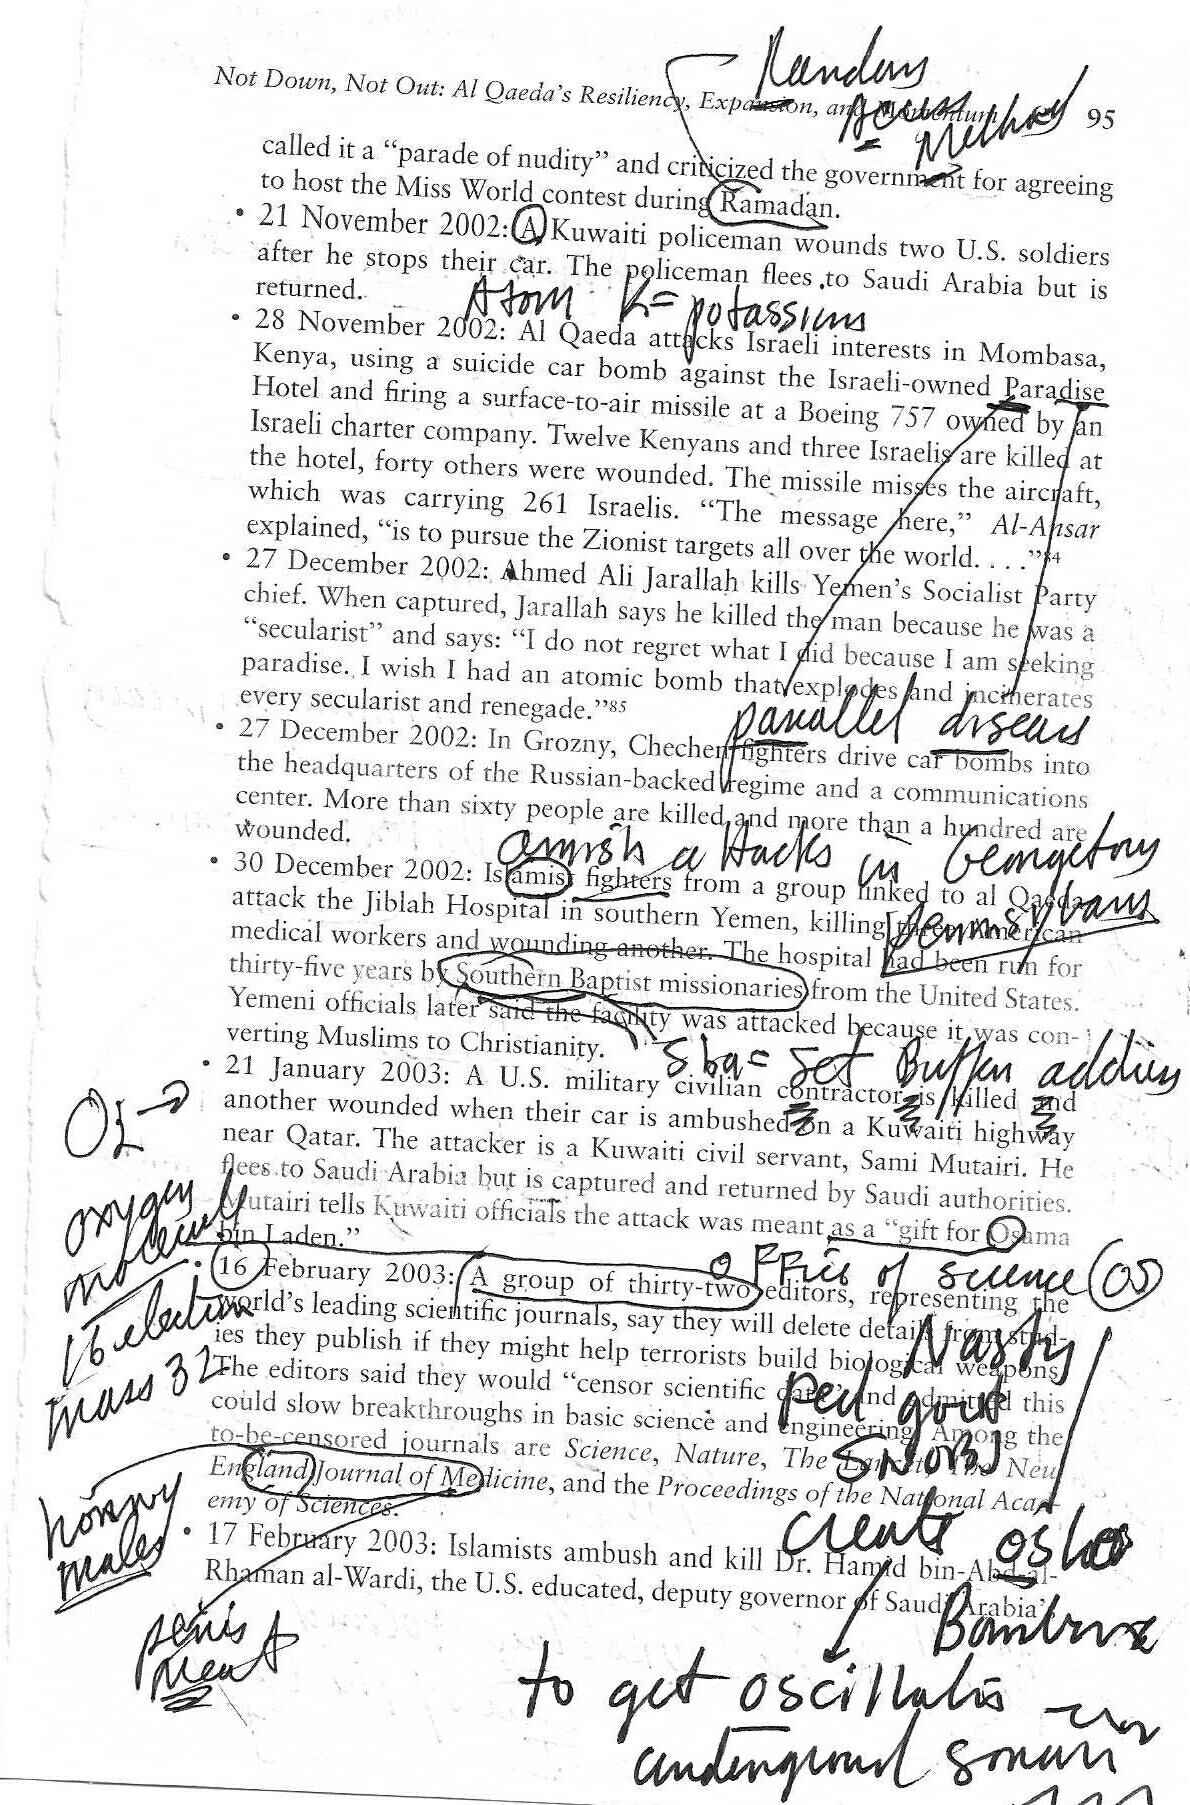 Random
Access
Method
Not Down, Not Out: Al Qaeda's Resiliency, Expansion, and Momentum 95
called it a “parade of nudity” and criticized the government for agreeing
to host the Miss World contest during Ramadan.
• 21 November 2002: A Kuwaiti policeman wounds two U.S. soldiers
after he stops their car. The policeman flees to Saudi Arabia but is
returned.
Atom K = potassium
• 28 November 2002: Al Qaeda attacks Israeli interests in Mombasa,
Kenya, using a suicide car bomb against the Israeli-owned Paradise
Hotel and firing a surface-to-air missile at a Boeing 757 owned by an
Israeli charter company. Twelve Kenyans and three Israelis are killed at
the hotel, forty others were wounded. The missile misses the aircraft,
which was carrying 261 Israelis. “The message here,” Al-Ansar
explained, “is to pursue the Zionist targets all over the world. . . .”84
• 27 December 2002: Ahmed Ali Jarallah kills Yemen's Socialist Party
chief. When captured, Jarallah says he killed the man because he was a
“secularist” and says: “I do not regret what I did because I am seeking
paradise. I wish I had an atomic bomb that explodes and incinerates
every secularist and renegade.”85
parallel disease
• 27 December 2002: In Grozny, Chechen fighters drive car bombs into
the headquarters of the Russian-backed regime and a communications
center. More than sixty people are killed and more than a hundred are
wounded.
amish attacks in Georgetown
Pennsylvania
• 30 December 2002: Islamist fighters from a group linked to al Qaeda
attack the Jiblah Hospital in southern Yemen, killing three American
medical workers and wounding another. The hospital had been run for
thirty-five years by Southern Baptist missionaries from the United States.
Yemeni officials later said the facility was attacked because it was con-
verting Muslims to Christianity.
Sba = Set Buffer address
• 21 January 2003: A U.S. military civilian contractor is killed and
another wounded when their car is ambushed on a Kuwaiti highway
near Qatar. The attacker is a Kuwaiti civil servant, Sami Mutairi. He
flees to Saudi Arabia but is captured and returned by Saudi authorities.
Mutairi tells Kuwaiti officials the attack was meant as a “gift for Osama
bin Laden.”
oxygen
molecule
16 electron
mass 32
office of science (OS)
• 16 February 2003: A group of thirty-two editors, representing the
world's leading scientific journals, say they will delete details from stud-
ies they publish if they might help terrorists build biological weapons.
The editors said they would “censor scientific data” and admitted this
could slow breakthroughs in basic science and engineering. Among the
to-be-censored journals are Science, Nature, The Lancet, The New
England Journal of Medicine, and the Proceedings of the National Acad-
emy of Sciences.
Nasty
SNOBS
create
horny
males
penis
meat
• 17 February 2003: Islamists ambush and kill Dr. Hamid bin-Abd-al-
Rhaman al-Wardi, the U.S. educated, deputy governor of Saudi Arabia's
to get
underground sonar